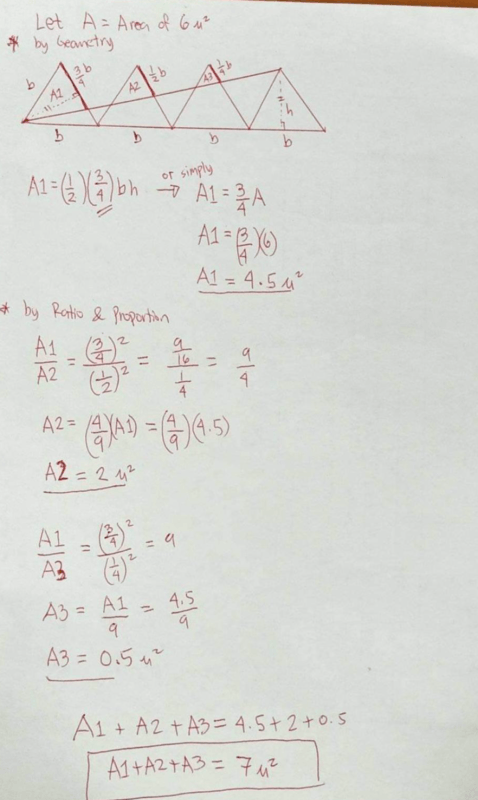 Let A = Area of 6 u²
* by Geometry
b 3/4 b A1 A2 1/2 b A3 1/4 b h
b b b b
A1 = (1/2)(3/4) bh or simply → A1 = 3/4 A
A1 = (3/4)(6)
A1 = 4.5 u²
* by Ratio & Proportion
A1/A2 = (3/4)²/(1/2)² = 9/16 / 1/4 = 9/4
A2 = (4/9)(A1) = (4/9)(4.5)
A2 = 2 u²
A1/A3 = (3/4)²/(1/4)² = 9
A3 = A1/9 = 4.5/9
A3 = 0.5 u²
A1 + A2 + A3 = 4.5 + 2 + 0.5
A1 + A2 + A3 = 7 u²